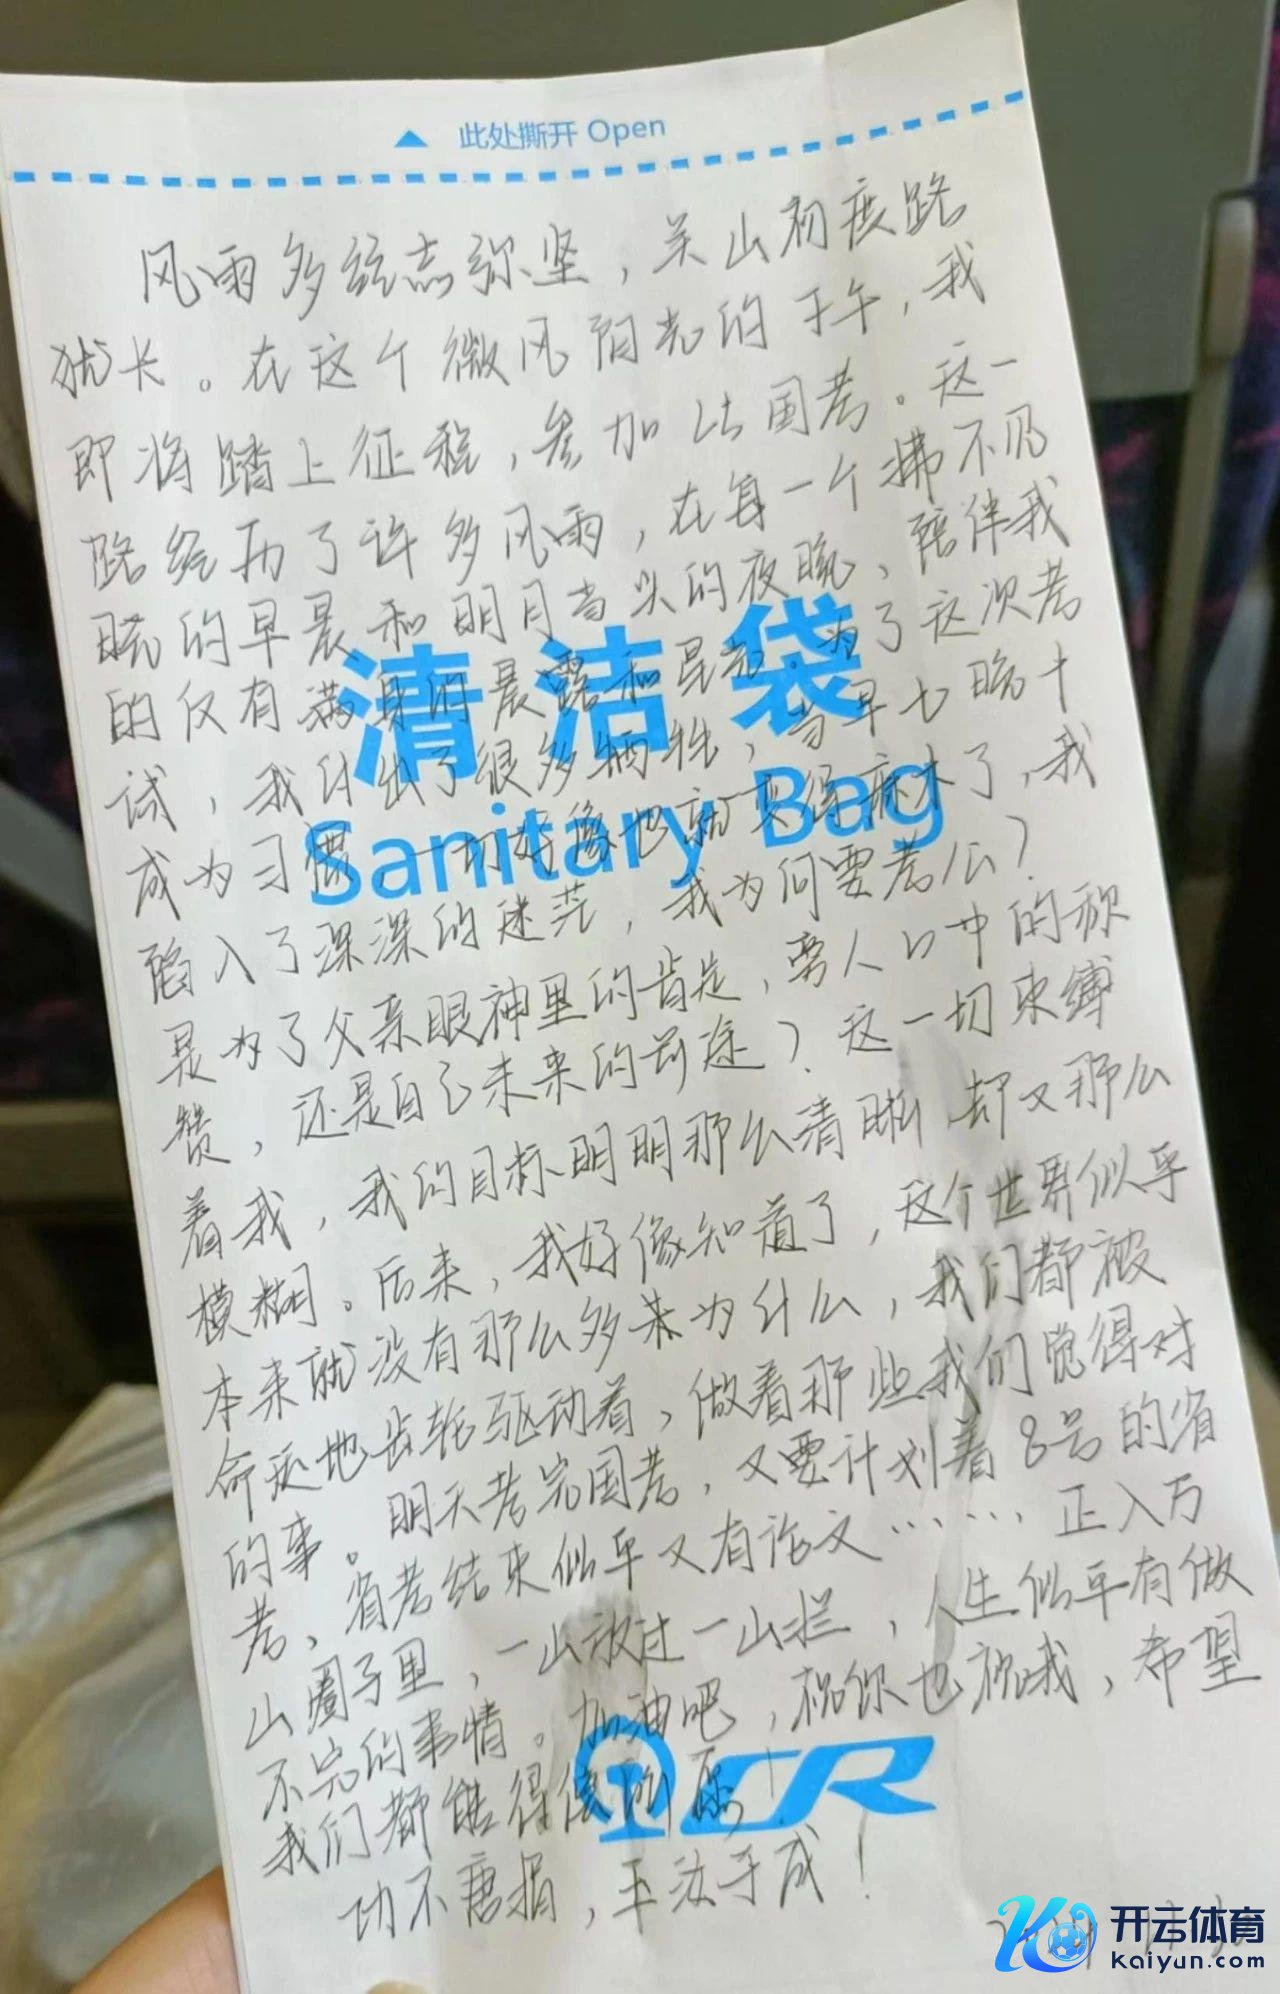 此处撕开 Open
风雨多经志弥坚，关山初度路
犹长。在这个微风有光的下午，我
即将踏上征程，参加此国考。这一
路经历了许多风雨，在每一个拂不见
晓的早晨和明月当头的夜晚，陪伴我
的仅有满身的晨露和星光。为了这次考
试，我付出了很多牺牲，当早七晚十
成为习惯，一切好像也就变得麻木了，我
陷入了深深的迷茫，我为何要考公？
是为了父亲眼神里的肯定，旁人口中的称
赞，还是自己未来的前途？这一切束缚
着我，我的目标明明那么清晰，却又那么
模糊。后来，我好像知道了，这个世界似乎
本来就没有那么多来为什么，我们都被
命运地齿轮驱动着，做着那些我们觉得对
的事。明天考完国考，又要计划着8号的省
考，省考结束似乎又有论文……，正入万
山圈子里，一山放过一山拦，人生似乎有做
不完的事情。加油吧，祝你也祝我，希望
我们都能得偿所愿，
功不唐捐，玉汝于成！
清洁袋
Sanitary Bag
CR
开云体育
Kaiyun.com